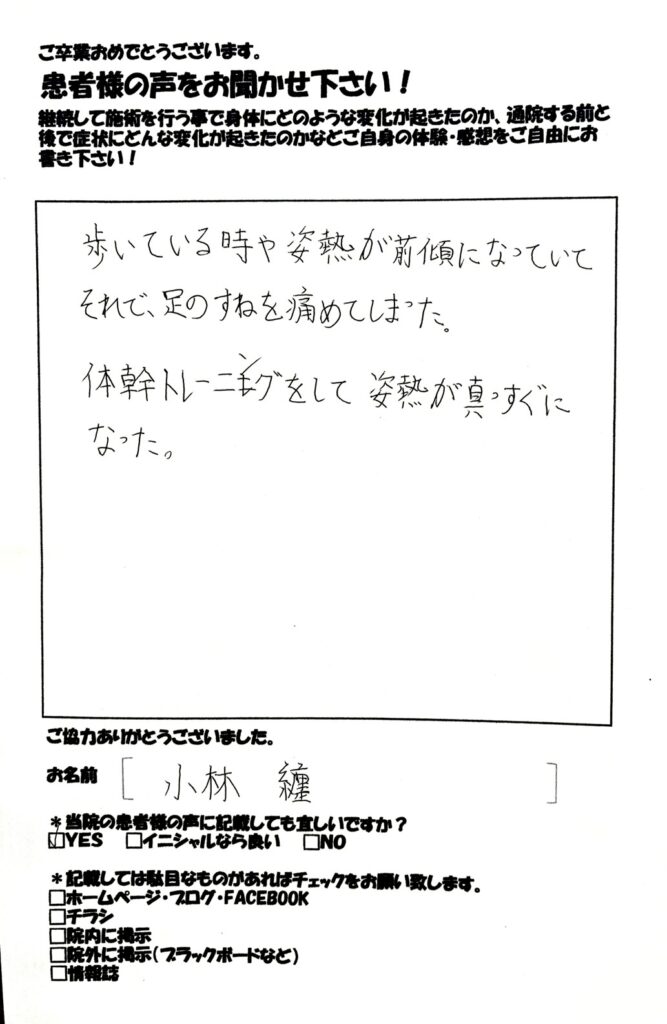 ご卒業おめでとうございます。
患者様の声をお聞かせ下さい！
継続して施術を行う事で身体にどのような変化が起きたのか、通院する前と
後で症状にどんな変化が起きたのかなどご自身の体験・感想をご自由にお
書き下さい！
歩いている時や姿熱が前傾になっていて
それで、足のすねを痛めてしまった。
体幹トレーニングをして姿熱が真っすぐに
なった。
ご協力ありがとうございました。
お名前 [ 小林 纏 ]
＊当院の患者様の声に記載しても宜しいですか？
☑YES □イニシャルなら良い □NO
＊記載しては駄目なものがあればチェックをお願い致します。
□ホームページ・ブログ・FACEBOOK
□チラシ
□院内に掲示
□院外に掲示（ブラックボードなど）
□情報誌